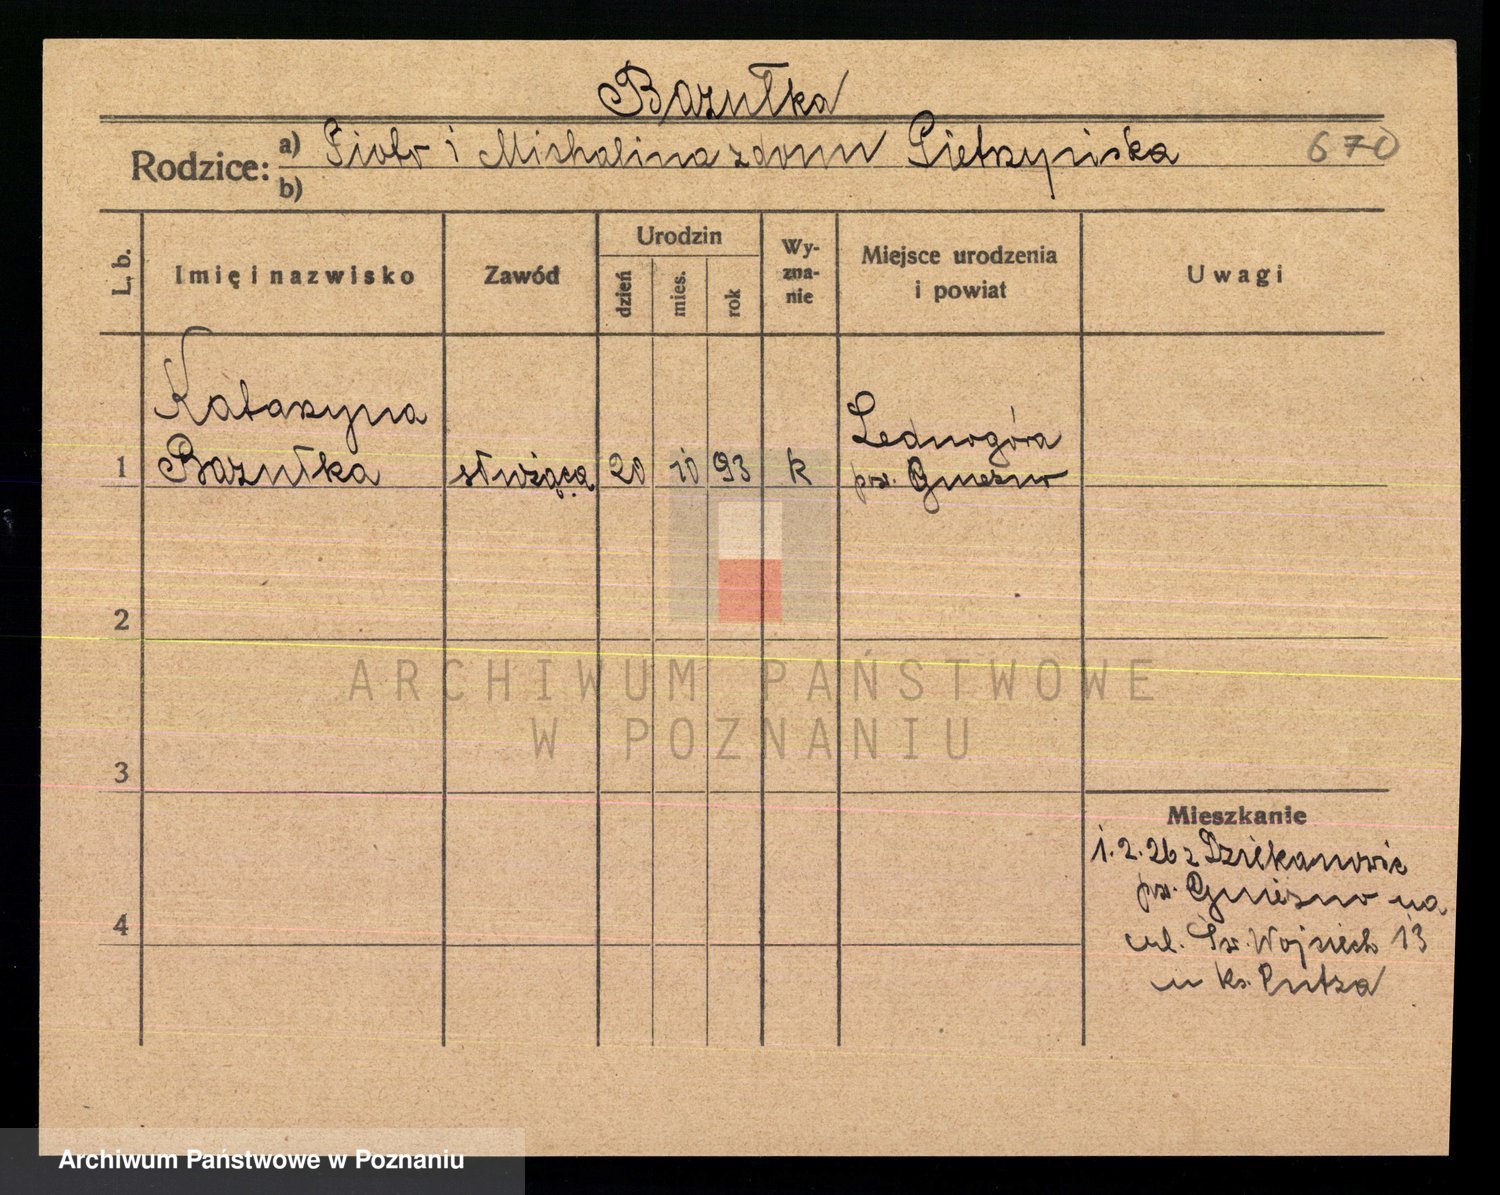 Bazułka
Rodzice: a) Piotr i Michalina z domu Pietrzyńska 670
b)
L. b. Imię i nazwisko Zawód Urodzin dzień mies. rok Wyznanie Miejsce urodzenia i powiat Uwagi
Katarzyna
Lednogóra
1 Bazułka służąca 20 10 93 k pow. Gniezno
2
ARCHIWUM PAŃSTWOWE
W POZNANIU
3
Mieszkanie
1.2.26 z Dziekanowic
pow. Gniezno na
4
ul. Św. Wojciech 13
u ks. Putza
Archiwum Państwowe w Poznaniu